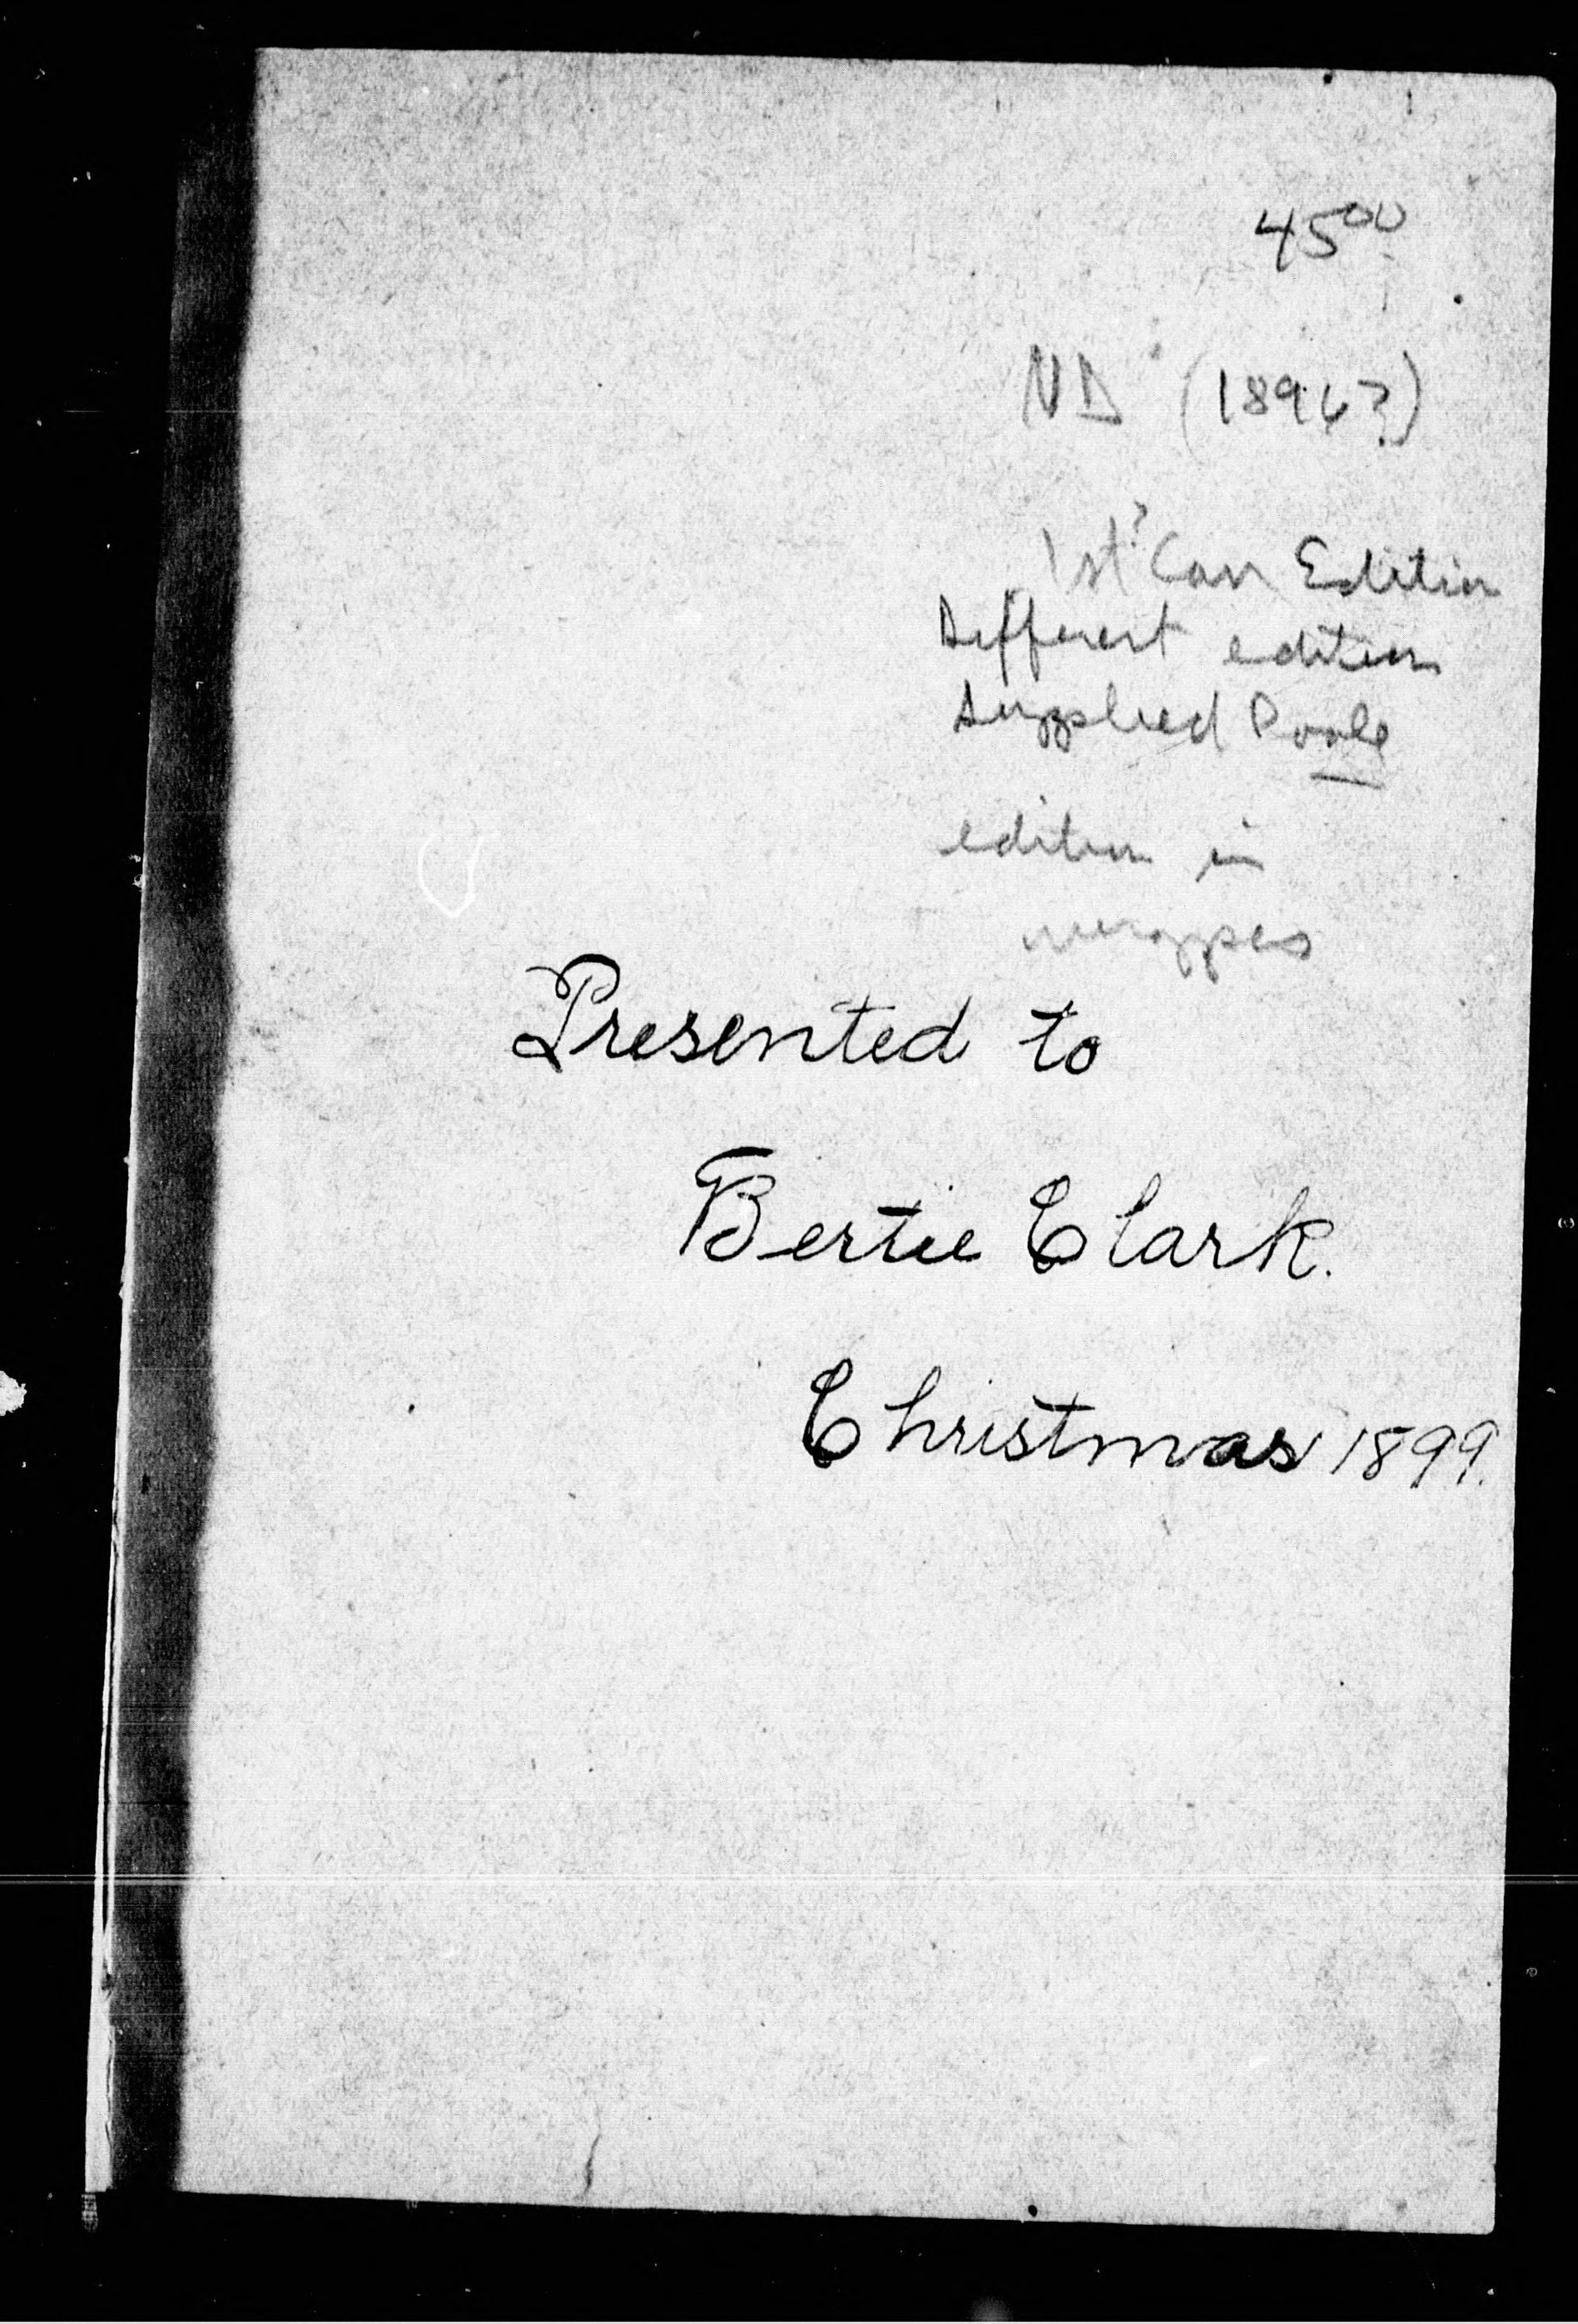 45⁰⁰
ND (1896?)
1st? Can Edition
Different edition
supplied Poole
edition in
wrappers
Presented to
Bertie Clark.
Christmas 1899.